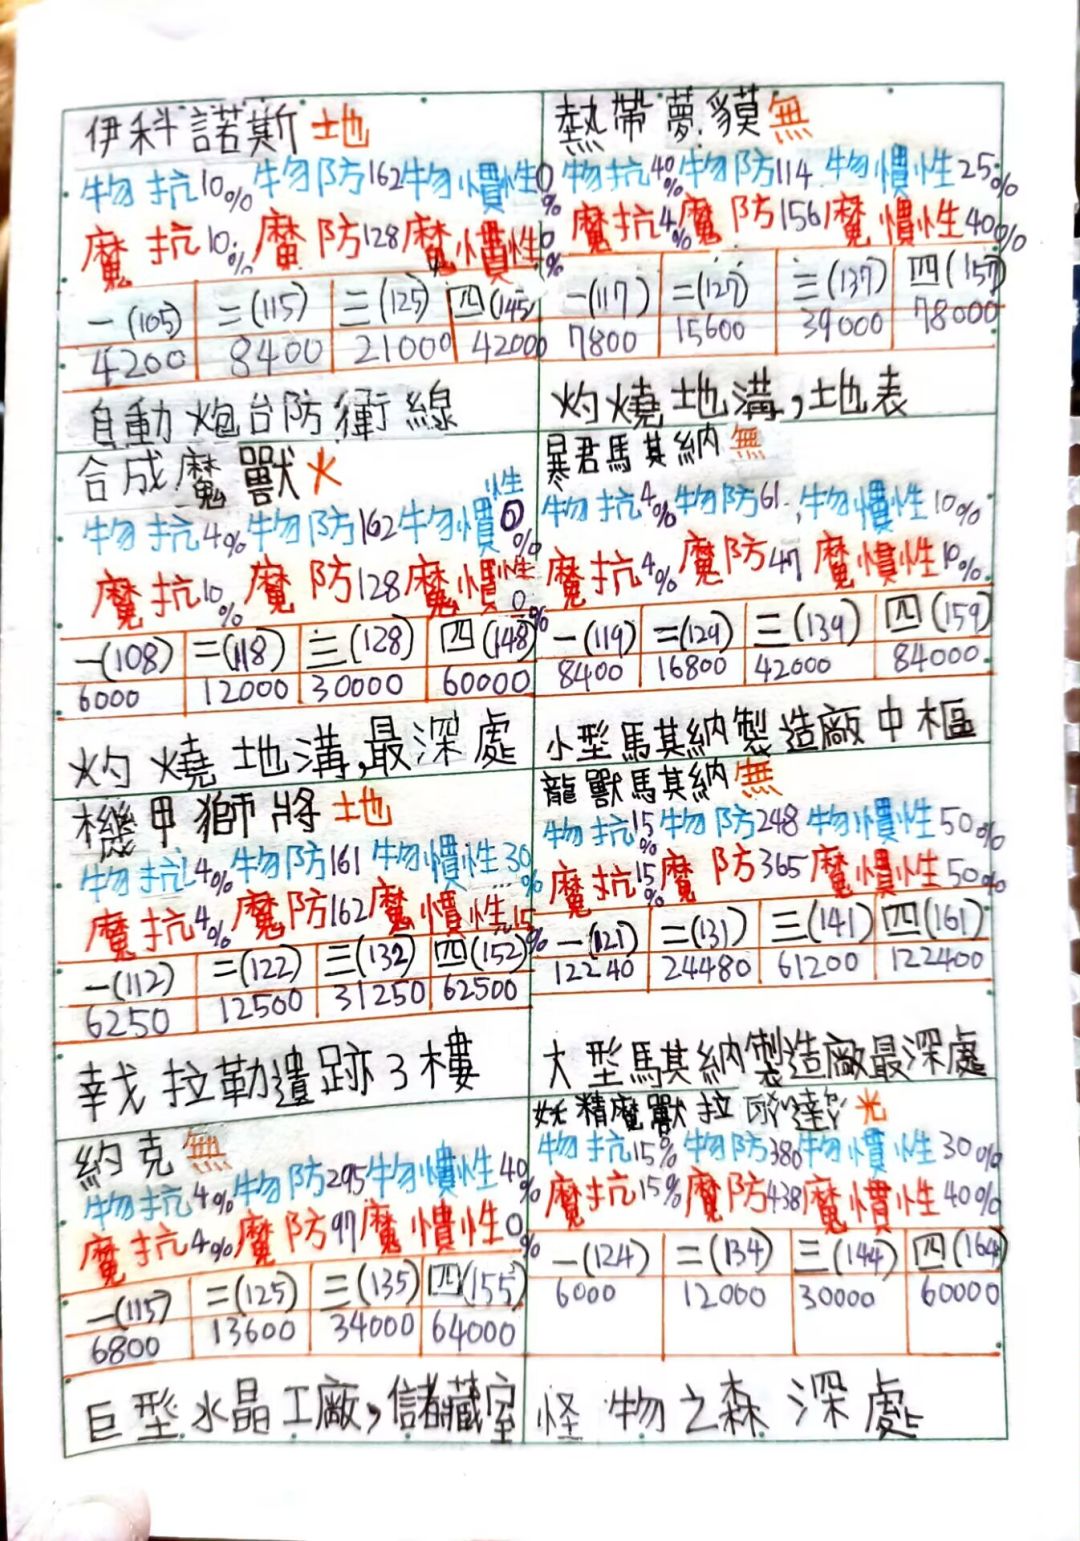 伊科諾斯地
物抗10%物防162物慣性0%
魔抗10%魔防128魔慣性0%
一(105) 二(115) 三(125) 四(145)
4200 8400 21000 42000
自動炮台防衛線
合成魔獸火
物抗4%物防162物慣性0%
魔抗10%魔防128魔慣性0%
一(108) 二(118) 三(128) 四(148)
6000 12000 30000 60000
灼燒地溝,最深處
機甲獅將地
物抗4%物防161物慣性30%
魔抗4%魔防162魔慣性15%
一(112) 二(122) 三(132) 四(152)
6250 12500 31250 62500
拉勒遺跡3樓
約克無
物抗4%物防295物慣性40%
魔抗4%魔防97魔慣性0%
一(115) 二(125) 三(135) 四(155)
6800 13600 34000 64000
巨型水晶工廠,儲藏室
熱帶夢貘無
物抗40%物防114物慣性25%
魔抗4%魔防156魔慣性40%
一(117) 二(127) 三(137) 四(157)
7800 15600 39000 78000
灼燒地溝,地表
暴君馬其納無
物抗4%物防61物慣性10%
魔抗4%魔防47魔慣性10%
一(119) 二(129) 三(139) 四(159)
8400 16800 42000 84000
小型馬其納製造廠中樞
龍獸馬其納無
物抗15%物防248物慣性50%
魔抗15%魔防365魔慣性50%
一(121) 二(131) 三(141) 四(161)
12240 24480 61200 122400
大型馬其納製造廠最深處
妖精魔獸拉達光
物抗15%物防380物慣性30%
魔抗15%魔防438魔慣性40%
一(124) 二(134) 三(144) 四(164)
6000 12000 30000 60000
怪物之森深處